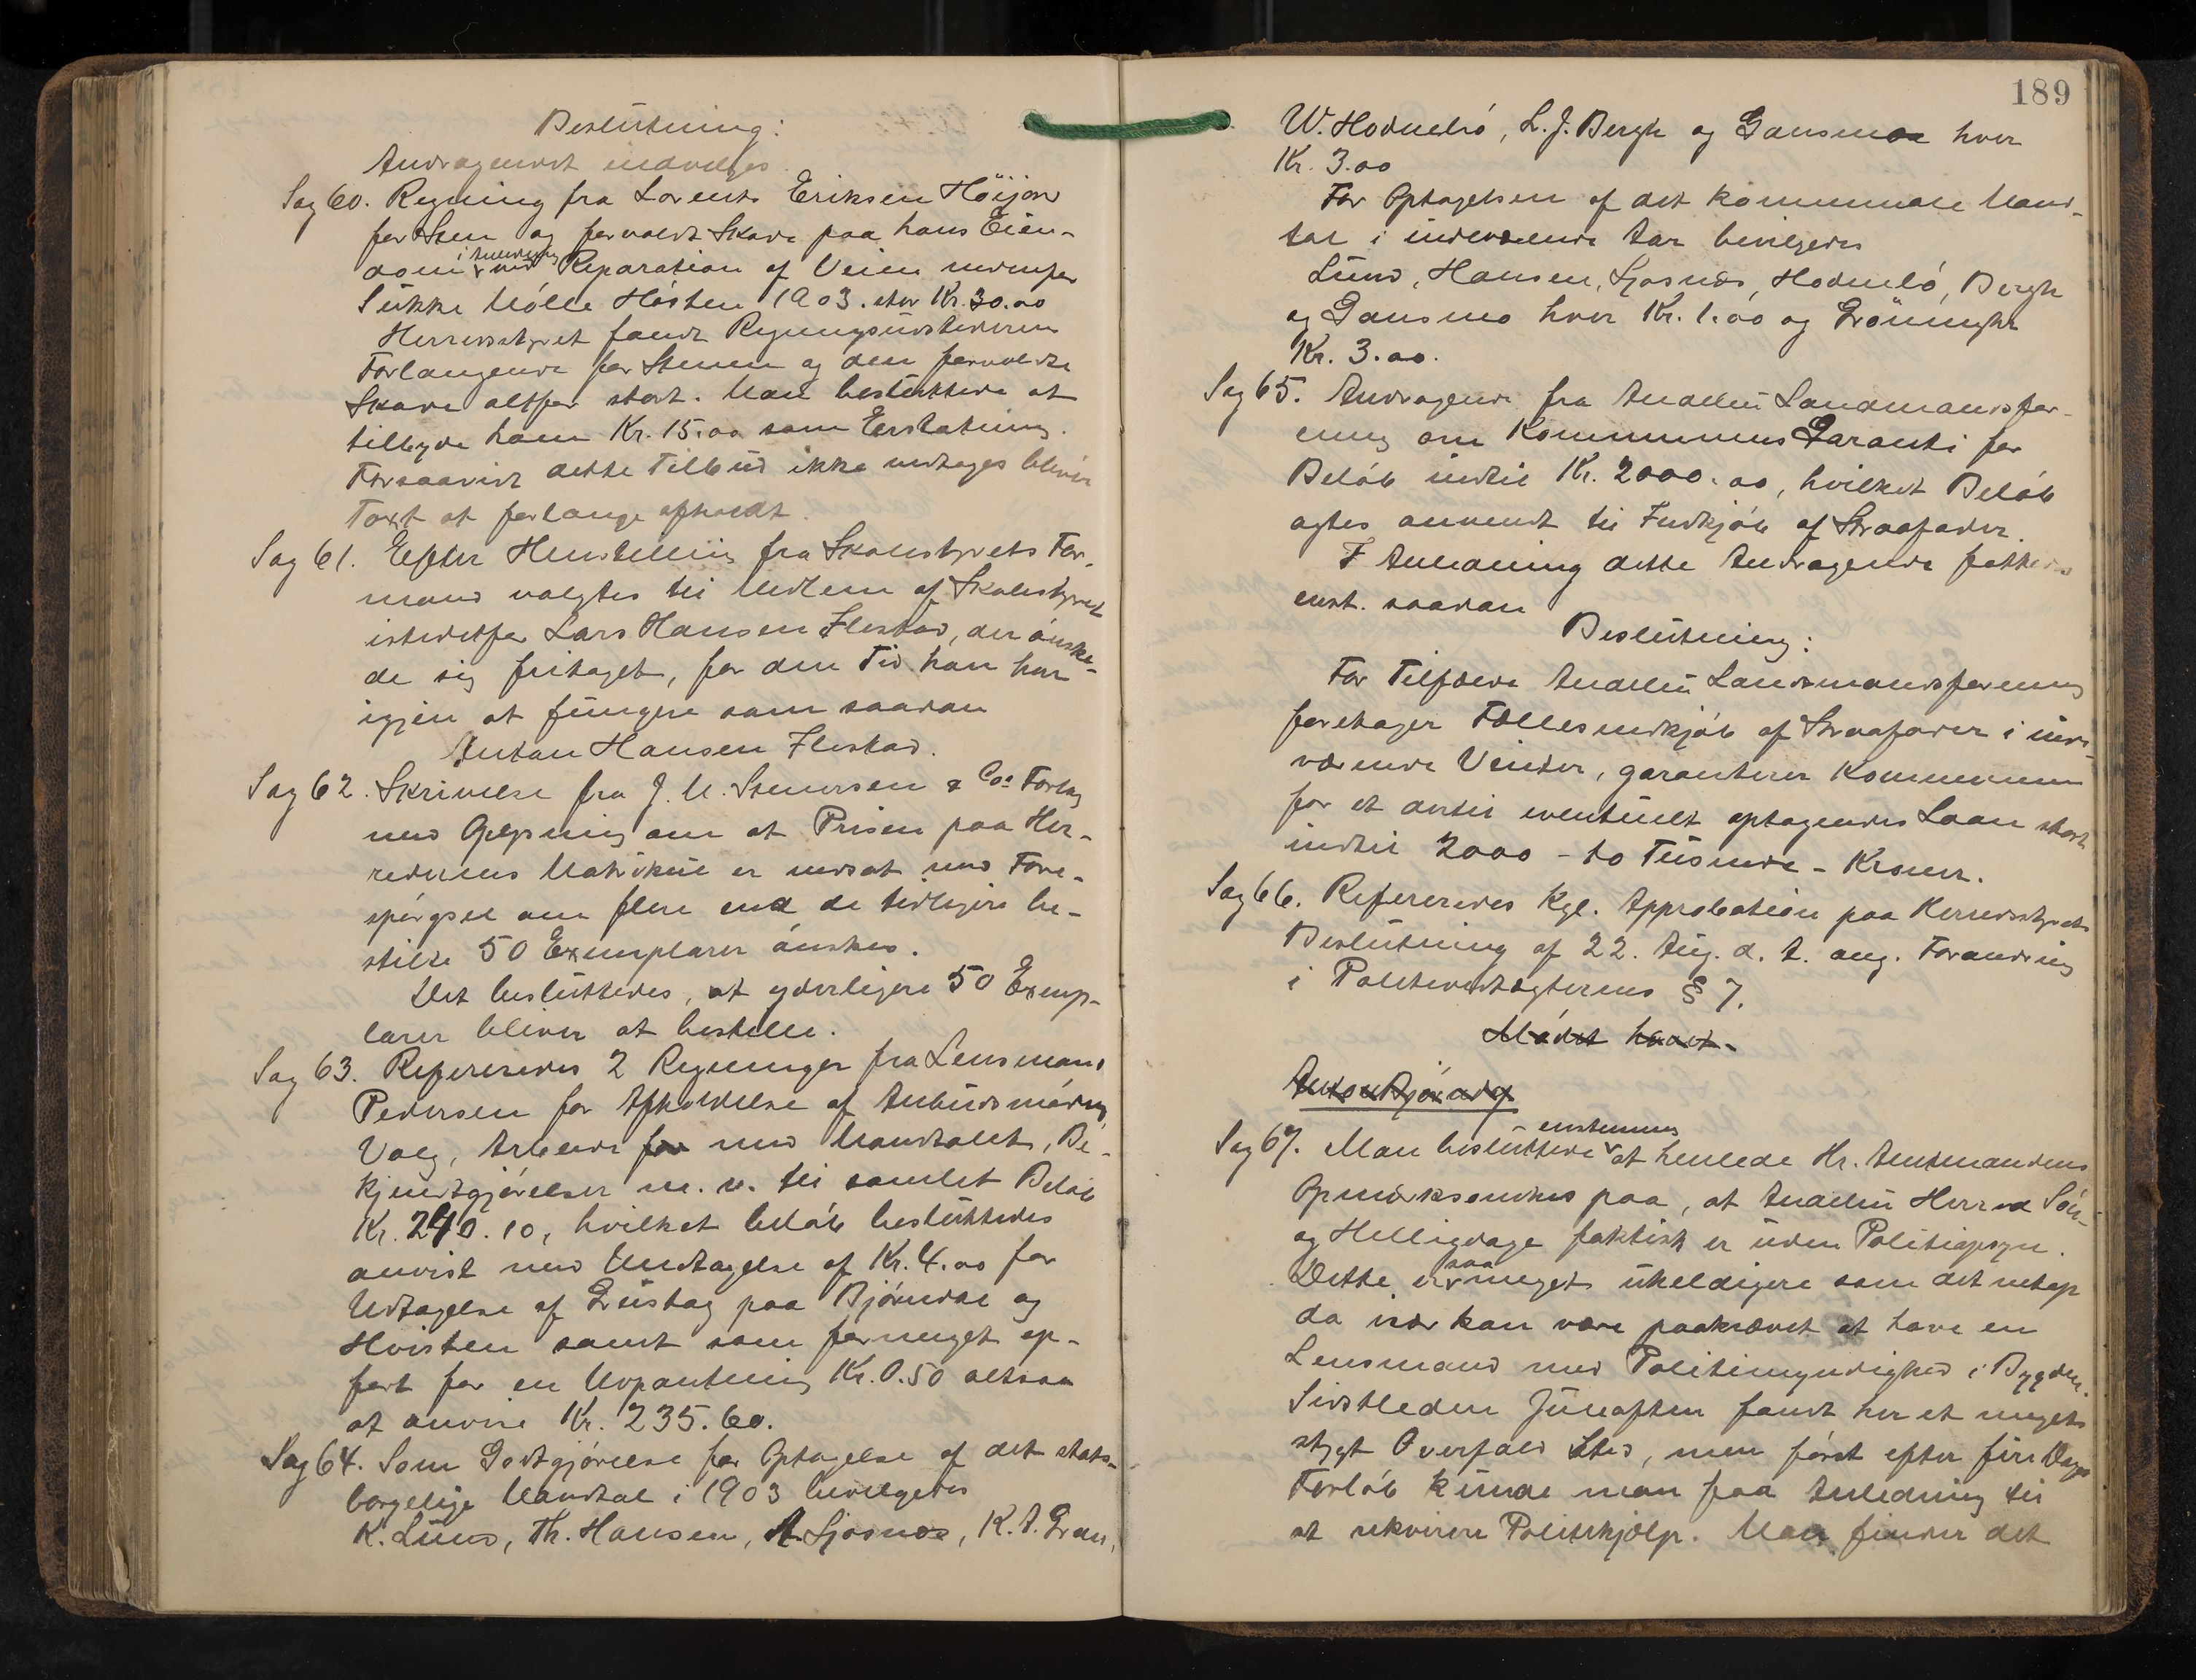 Beslutning:
Andragendet indvilges.
Sag 60. Regning fra Lorents Eriksen Höijord
for Sten og forvoldt Skade paa hans Eien-
dom i Anledning ved Reparation af Veien nedenfor
Sukke Mölle Hösten 1903. stor Kr. 30.00
Herredsstyret fandt Regningsudstederens
Forlangende for Stenen og den forvoldte
Skade altfor stort. Man besluttede at
tilbyde ham Kr. 15.00 som Erstatning.
Forsaavidt dette Tilbud ikke vedtages bliver
Taxt at forlange afholdt.
Sag 61. Efter Henstilling fra Skolestyrets For-
mand valgtes til Medlem af Skolestyret
istedetfor Lars Hansen Flestad, der önske-
de sig fritaget, for den Tid han har
igjen at fungere som saadan
Anton Hansen Flestad.
Sag 62. Skrivelse fra J. M. Stenersen & Co. Forlag
med Oplysning om at Prisen paa Her-
redernes Matrikul er nedsat med Fore-
spörgsel om flere end de tidligere be-
stilte 50 Exemplarer önskes.
Det besluttedes, at yderligere 50 Exemp-
larer bliver at bestille.
Sag 63. Refereredes 2 Regninger fra Lensmand
Pedersen for Afholdelse af Anbudsmöder,
Valg, Arbeide for med Mandtallet, Be-
kjendtgjörelser m. v. til samlet Belöb
Kr. 240.10, hvilket belöb besluttedes
anvist med Undtagelse af Kr. 4.00 for
Udtagelse af Grustag paa Björndal og
Hvisten samt som formeget op-
fört for en Udpantning Kr. 0.50 altsaa
at anvise Kr. 235.60.
Sag 64. Som Godtgjörelse for Optagelse af det stats-
borgelige Mandtal i 1903 bevilgedes
K. Lund, Th. Hansen, A. Gjosnæs, K. A. Gran,
189
W. Hodnebö, L. J. Bergh og Gansmoe hver
Kr. 3.00
For Optagelsen af det kommunale Mand-
tal i indeværende Aar bevilgedes
Lund, Hansen, Gjosnæs, Hodnebö, Bergh
og Gansmo hver Kr. 1.00 og Grönningh
Kr. 3.00.
Sag 65. Andragende fra Andebu Landmandsfor-
ening om Kommunens Garanti for
Belöb indtil Kr. 2000.00, hvilket Belöb
agtes anvendt til Indkjöb af Straafoder.
I Anledning dette Andragende fattedes
enst. saadan
Beslutning:
For Tilfælde Andebu Landmandsforening
foretager Fællesindkjöb af Straafoder i inde-
værende Vinter, garanterer Kommunen
for et dertil eventuelt optagendes Laan stort
indtil 2000 - to Tusinde - Kroner.
Sag 66. Refereredes Kgl. Approbation paa Herredsstyrets
Beslutning af 22. Aug. d. A. ang. Forandring
i Politivedtægternes § 7.
Mödet hævet.
Anton Björndg
Sag 67. Man besluttede enstemmig at henlede Hr. Amtmandens
Opmærksomhed paa, at Andebu Herred Sön-
og Helligdage faktisk er uden Politiopsyn.
Dette er saa meget uheldigere som det netop
da især kan være paakrævet at have en
Lensmand med Politimyndighed i Bygden.
Sidstleden Juleaften fandt her et meget
stygt Overfald Sted, men först efter fire Dages
Forlöb kunde man faa Anledning til
at rekvirere Politihjælp. Man finder det